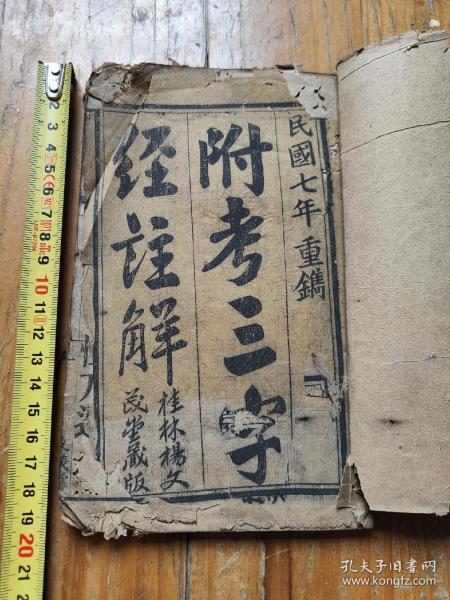 民國七年重鐫
附考三字
经註解
桂林楊文
茂堂藏版
2
3
4
5
6
7
8
9
10
11
12
13
14
15
16
17
18
19
20
21
孔夫子旧书网
www.kongfz.com